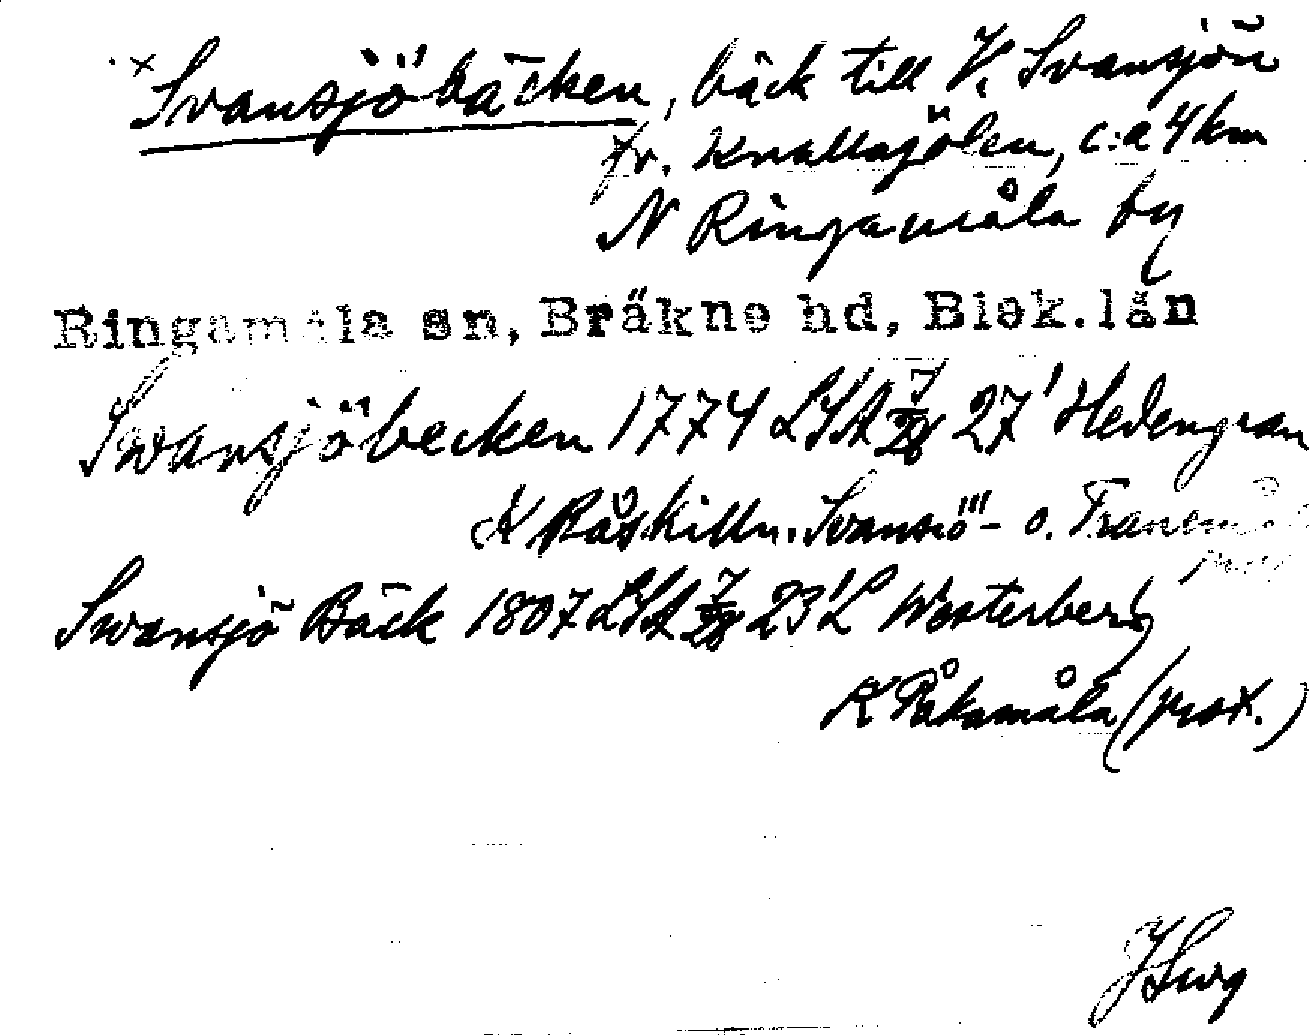 × Svansjöbäcken, bäck till V. Svansjön
fr. Knallagölen, c:a 4 km
N Ringamåla by
Ringamåla sn, Bräkne hd, Blek. län
Swansjöbecken 1774 LSA 27' Hedengran
K Råskilln. Svansiö- o. Tranemå
Swansjö Bäck 1807 LSA 23' L Westerberg
K Påkamåla (prot.)